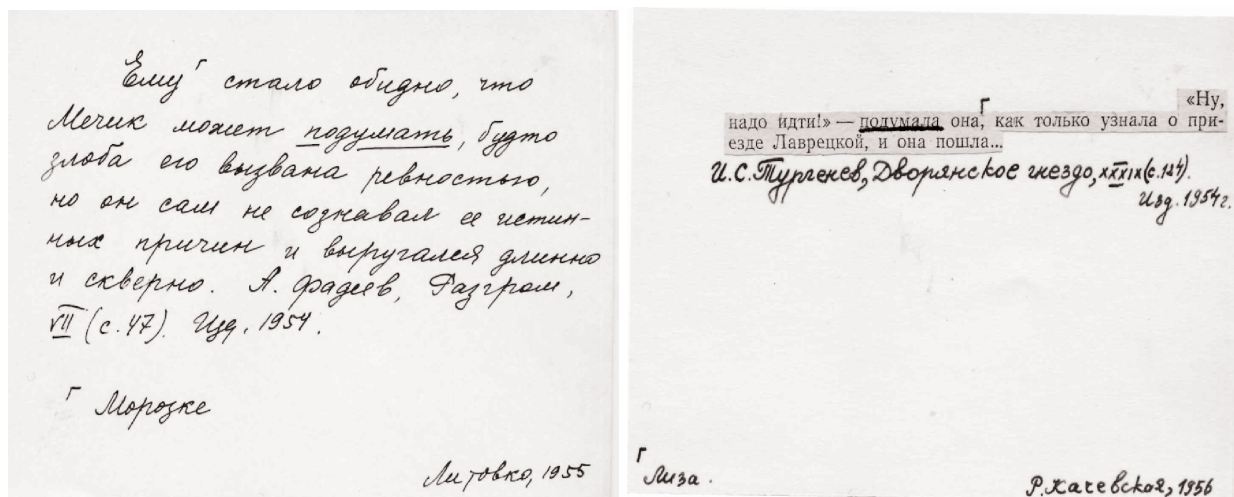 Ему⌈ стало обидно, что
Мечик может подумать, будто
злоба его вызвана ревностью,
но он сам не сознавал ее истин-
ных причин и выругался длинно
и скверно. А. Фадеев, Разгром,
VII (с. 47). Изд. 1954.
⌈ Морозке
Литовко, 1955
«Ну,
надо идти!» — подумала она⌈, как только узнала о при-
езде Лаврецкой, и она пошла...
И.С. Тургенев, Дворянское гнездо, XXXIX (с. 124).
Изд. 1954 г.
⌈ Лиза.
Р. Качевская, 1956